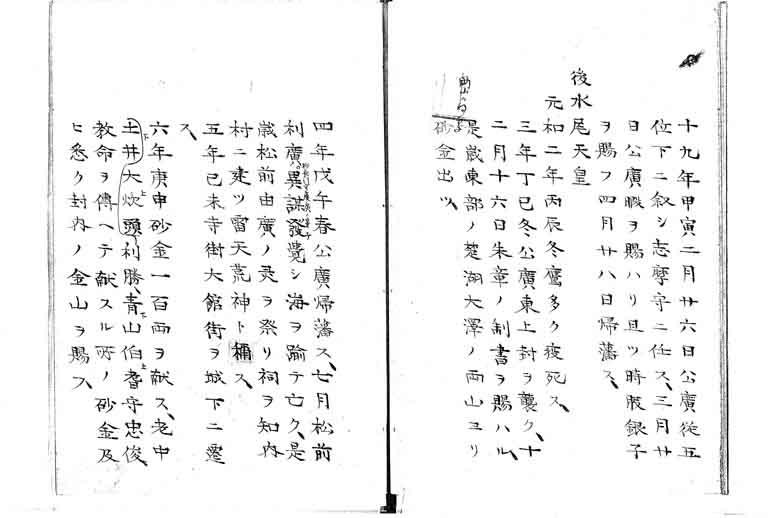 十九年甲寅二月廿六日公廣從五
位下ニ叙シ志摩守ニ任ス、三月廿
日公廣暇ヲ賜ハリ且ツ時服銀子
ヲ賜フ四月廿八日帰藩ス、
後水尾天皇
元和二年丙辰冬鷹多ク疫死ス、
三年丁巳冬公廣東上封ヲ襲ク、十
二月十六日朱章ノ制書ヲ賜ハル、
是歳東部ノ楚湖大澤ノ両山ヨリ
砂金出ツ、
四年戊午春公廣帰藩ス、七月松前
利廣異謀發覺シ海ヲ踰テ亡ク、是
歳松前由廣ノ灵ヲ祭リ祠ヲ知内
村ニ建ツ雷天荒神ト稱ス、
五年己未寺街大館街ヲ城下ニ遷
ス、
六年庚申砂金一百両ヲ献ス、老中
土井大炊頭利勝、青山伯耆守忠俊、
教命ヲ傳ヘテ献スル所ノ砂金及
ヒ悉ク封内ノ金山ヲ賜フ、